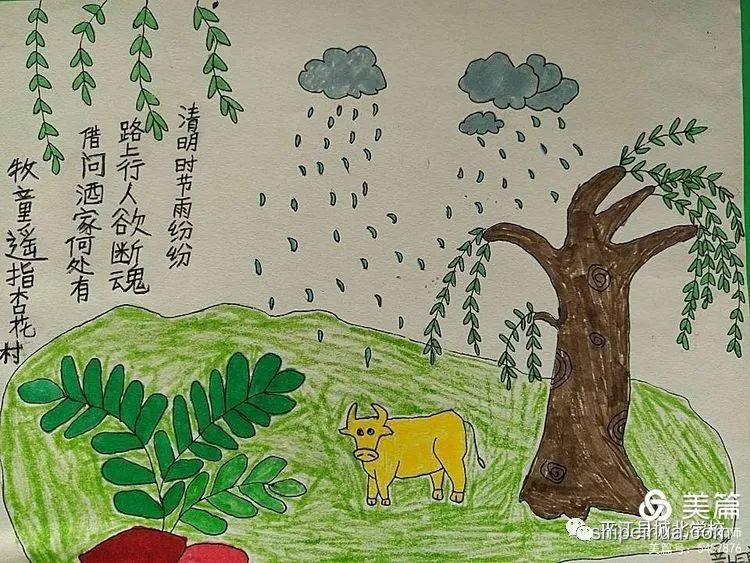 清明时节雨纷纷
路上行人欲断魂
借问酒家何处有
牧童遥指杏花村
美篇
县城北学校